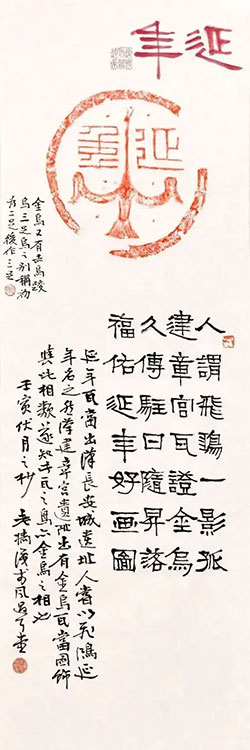 延年
延年
金烏又有赤烏踆
烏三足烏之别稱初
为二足後作三足
人謂飛鴻一影孤
建章宫瓦證金烏
久傳駐日隨昇落
福佑延年好画圖
延年瓦當出漢長安城遺址人審以飛鴻延
年名之然漢建章宫遺址出有金烏瓦當圖飾
與此相類遂知予瓦之鳥亦金烏之相也
壬寅伏月之杪